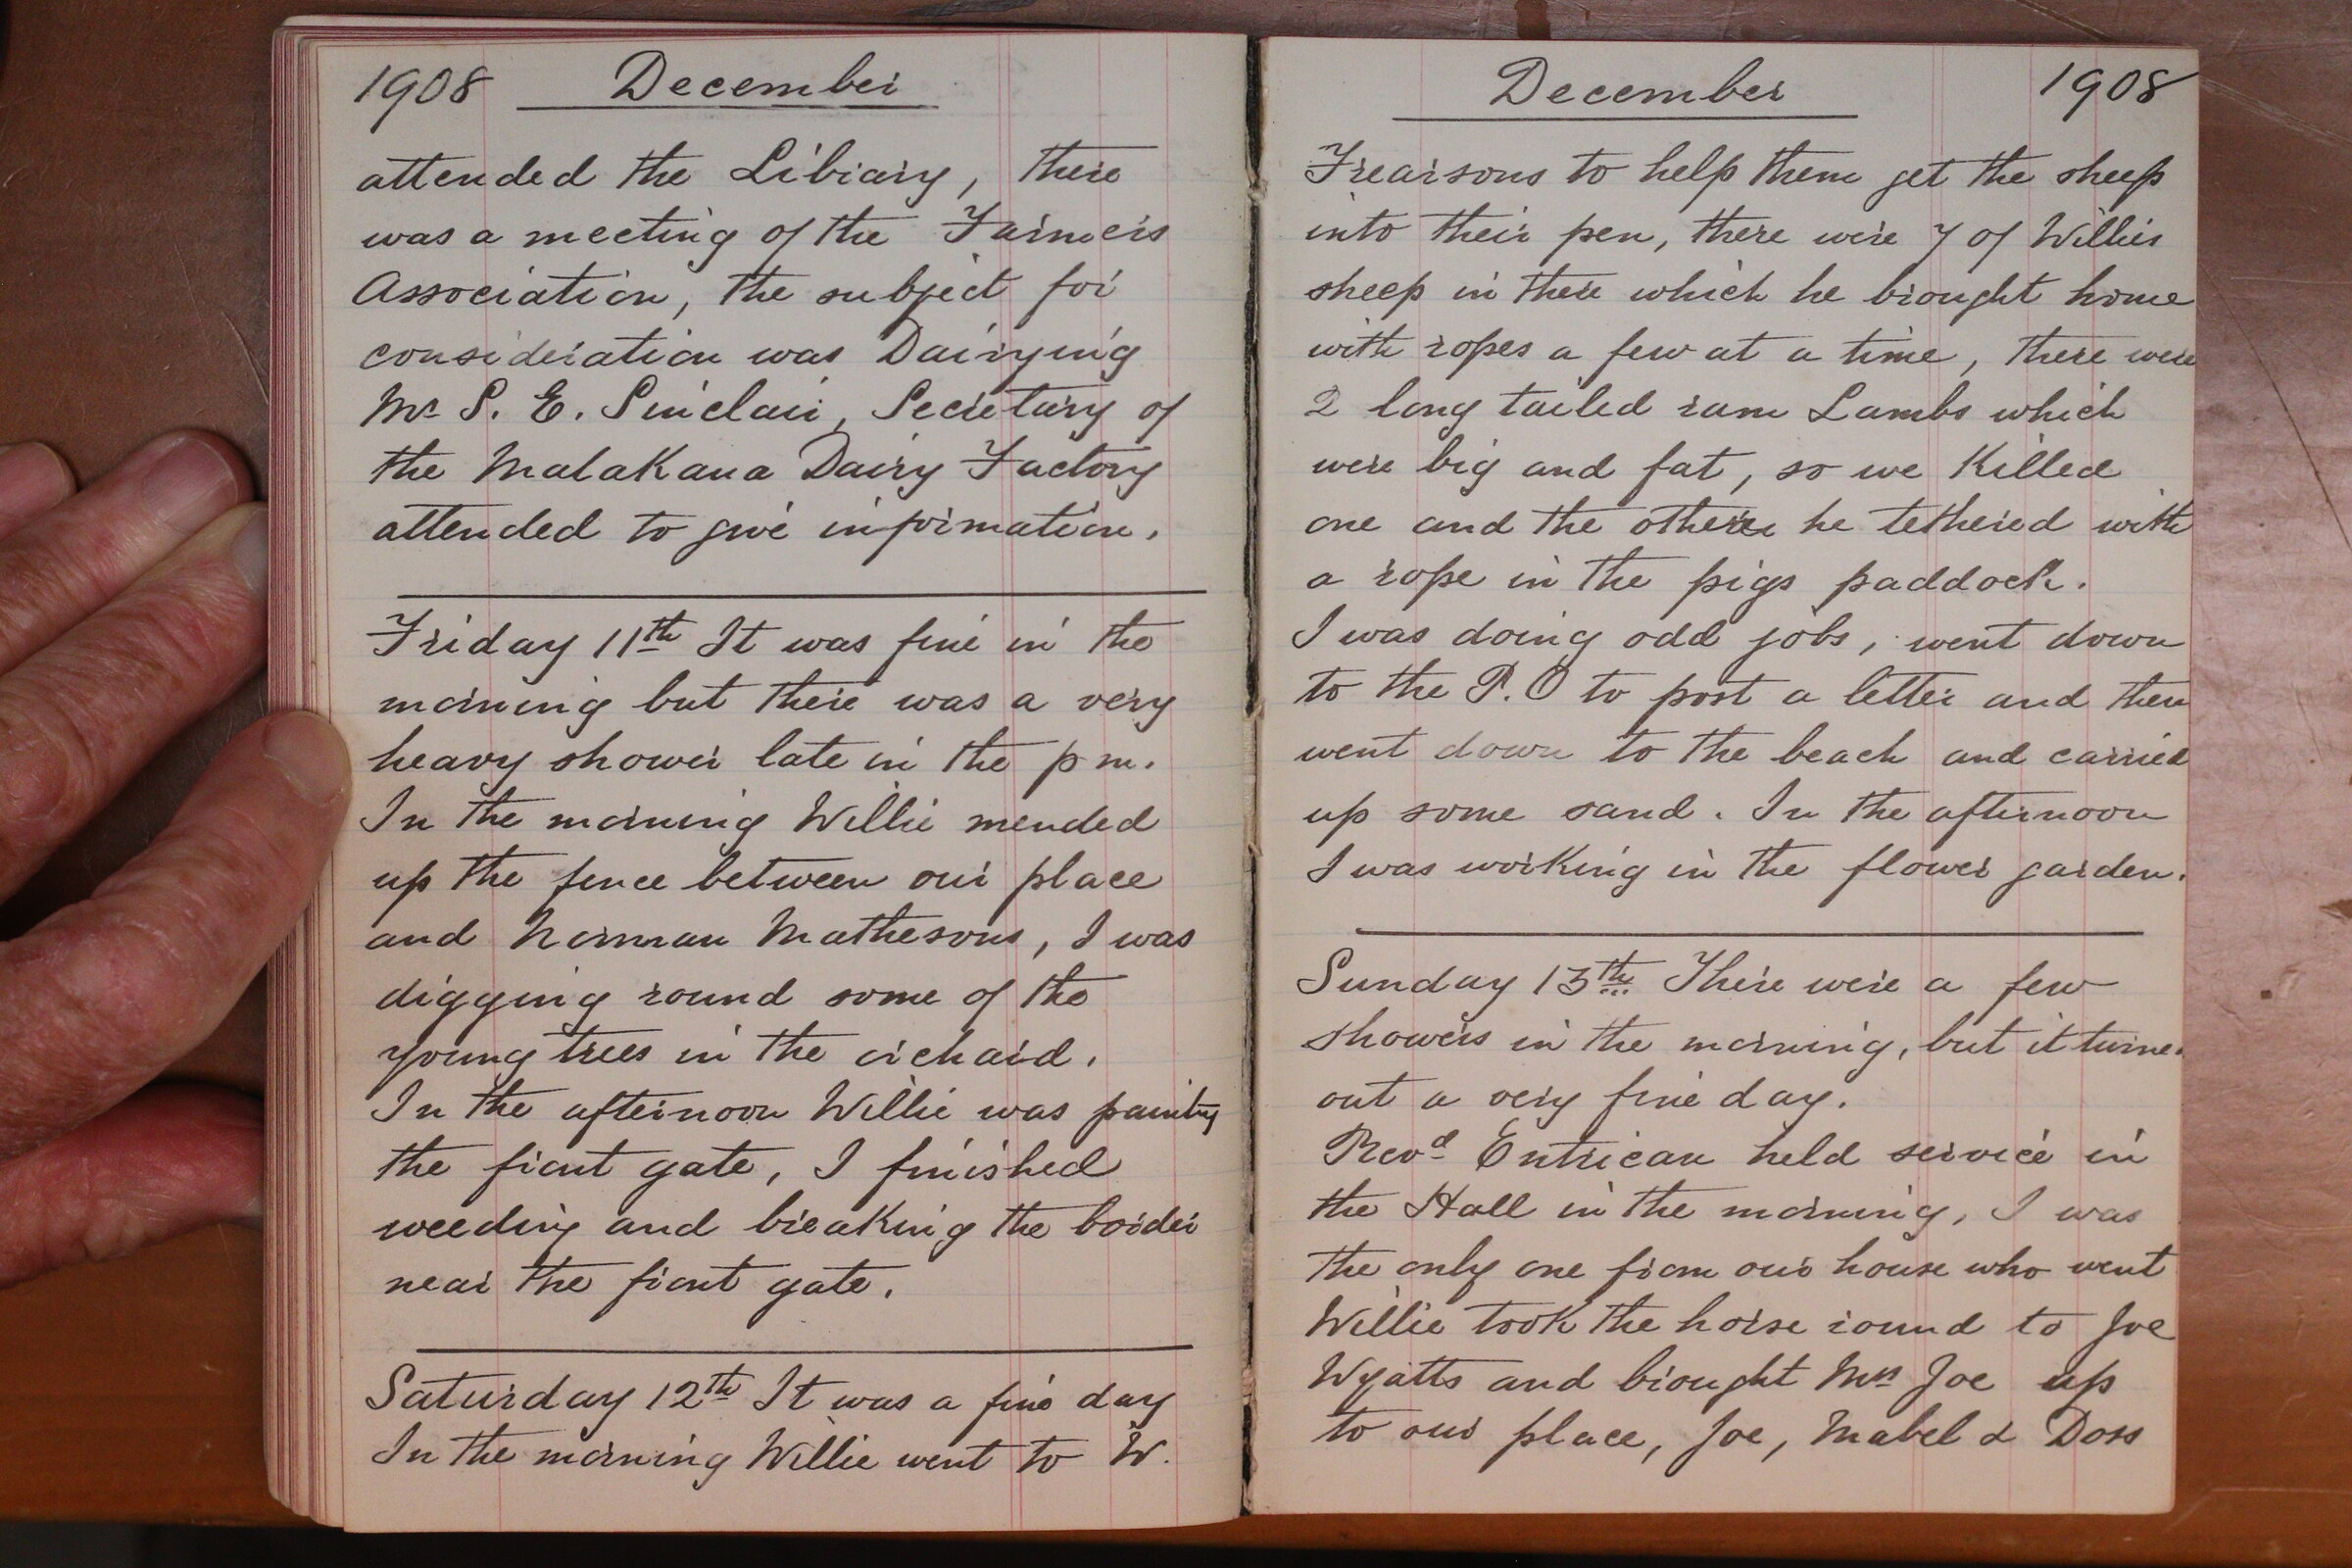 1908 December
attended the Library, there
was a meeting of the Farmers
Association, the subject for
consideration was Dairying
Mr S. E. Sinclair, Secretary of
the Matakana Dairy Factory
attended to give information.
Friday 11th It was fine in the
morning but there was a very
heavy shower late in the p m.
In the morning Willie mended
up the fence between our place
and Norman Mathesons, I was
digging round some of the
young trees in the orchard.
In the afternoon Willie was painting
the front gate, I finished
weeding and breaking the border
near the front gate.
Saturday 12th It was a fine day
In the morning Willie went to W.
December 1908
Frearsons to help them get the sheep
into their pen, there were 7 of Willies
sheep in there which he brought home
with ropes a few at a time, there were
2 long tailed ram Lambs which
were big and fat, so we killed
one and the other he tethered with
a rope in the pigs paddock.
I was doing odd jobs, went down
to the P.O to post a letter and then
went down to the beach and carried
up some sand. In the afternoon
I was working in the flower garden.
Sunday 13th There were a few
showers in the morning, but it turned
out a very fine day.
Revd Entrican held service in
the Hall in the morning, I was
the only one from our house who went
Willie took the horse round to Joe
Wyatts and brought Mrs Joe up
to our place, Joe, Mabel & Doss